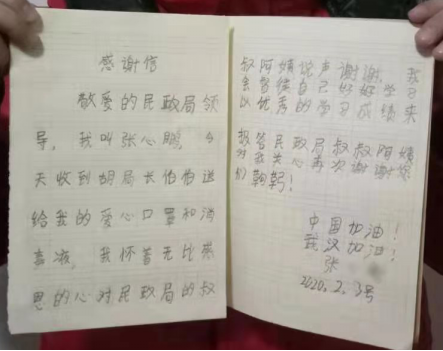 感谢信
敬爱的民政局领
导，我叫张心鹏，今
天收到胡局长伯伯送
给我的爱心口罩和消
毒液，我怀着无比感
恩的心对民政局的叔
叔阿姨说声谢谢，我
会督促自己好好学习
以优秀的学习成绩来
报答民政局叔叔阿姨
对我关心再次谢谢
们 鞠躬！
中国加油！
武汉加油！
张
2020.2.3号